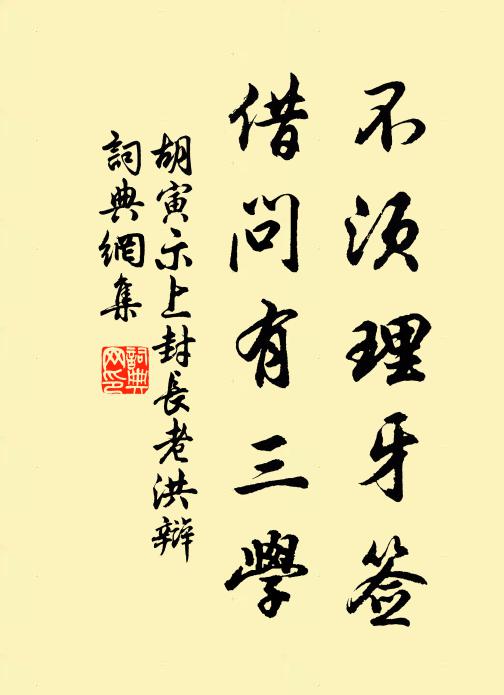 不須理牙签
借問有三學
胡寅示上封長老洪辯
詞典網集
詞典网印